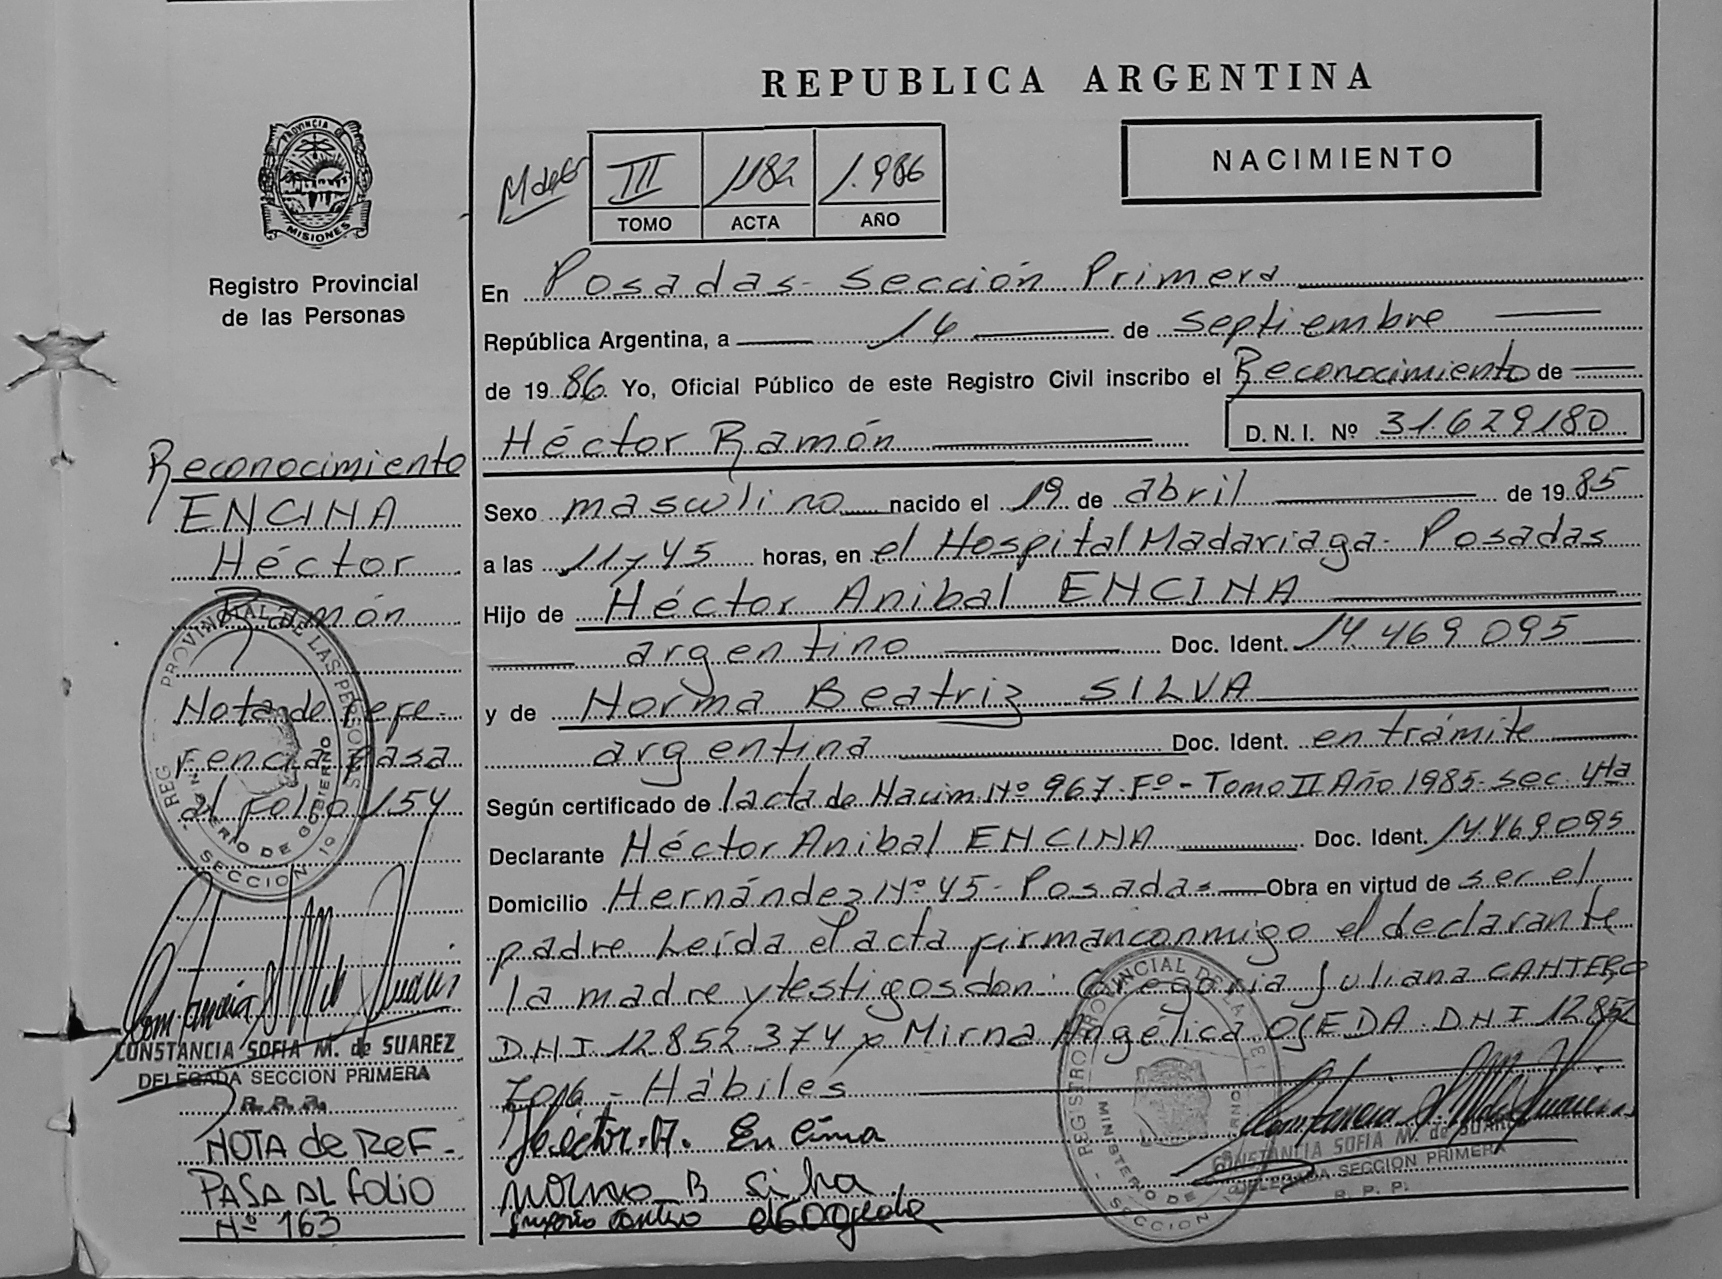 REPUBLICA ARGENTINA
PROVINCIA DE
MISIONES
Registro Provincial
de las Personas
NACIMIENTO
III 1182 1.986
TOMO ACTA AÑO
En Posadas - Sección Primera
República Argentina, a 16 de septiembre
de 19 86. Yo, Oficial Público de este Registro Civil inscribo el Reconocimiento de
Héctor Ramón D. N. I. Nº 31.629.180
Sexo masculino nacido el 19 de abril de 19 85
a las 11 y 45 horas, en el Hospital Madariaga - Posadas
Hijo de Héctor Anibal ENCINA
argentino Doc. Ident. 14.469.095
y de Norma Beatriz SILVA
argentina Doc. Ident. en trámite
Según certificado de l acta de Nacim. Nº 967-Fº - Tomo II Año 1985- sec. 4ta
Declarante Héctor Anibal ENCINA Doc. Ident. 14.469.095
Domicilio Hernández Nº 45 - Posadas Obra en virtud de ser el
padre Leída el acta firman conmigo el declarante
la madre y testigos don: Gregoria Juliana CANTERO
DNI 12.852.374 y Mirna Angélica OJEDA - DNI 12.852
- Hábiles
Héctor. A. Encina
Norma B Silva
Reconocimiento
ENCINA
Héctor
Ramón
Nota de refe-
rencia pasa
al folio 154
REG. PROVINCIAL DE LAS PERSONAS
MINISTERIO DE GOBIERNO
SECCION 1º
CONSTANCIA SOFIA M. de SUAREZ
DELEGADA SECCION PRIMERA
NOTA de REF-
PASA AL FOLIO
Nº 163
REGISTRO PROVINCIAL DE LA
MINISTERIO DE
SECCION
CONSTANCIA SOFIA M. de SUAREZ
DELEGADA SECCION PRIMERA
R. P. P.